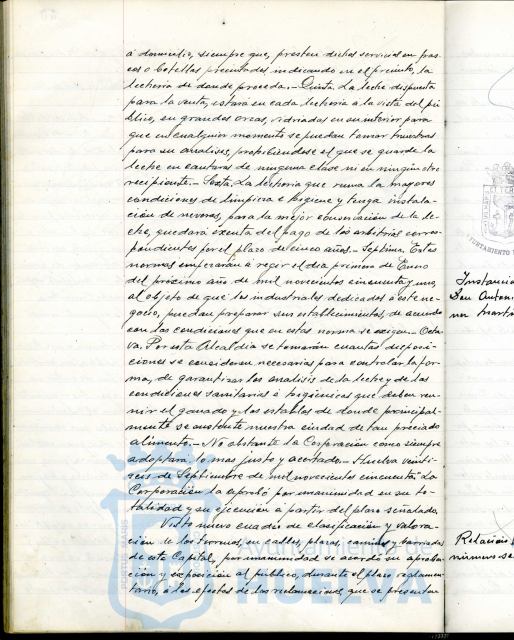 á domicilio, siempre que, presten dichos servicios en fras-
cos o botellas precintados indicando en el precinto, la
lechería de donde proceda.- Quinta. La leche dispuesta
para la venta, estará en cada lechería a la vista del pú-
blico, en grandes orcas, vidriadas en su interior para
que en cualquier momento se puedan tomar muestras
para su analisis, prohibiéndose el que se guarde la
leche en cantaras de ninguna clase ni en ningún otro
recipiente.- Sexta. La lechería que reuna las mayores
condiciones de limpieza e higiene y tenga instala-
ción de neveras, para la mejor conservación de la le-
che, quedará exenta del pago de los arbitrios corres-
pondientes por el plazo de cinco años.- Septima. Estas
normas empezarán a regir el día primero de Enero
del próximo año de mil novecientos cincuenta y uno,
al objeto de que los industriales dedicados a este ne-
gocio, puedan preparar sus establecimientos, de acuerdo
con las condiciones que en estas norma se exigen.- Octa-
va. Por esta Alcaldia se tomarán cuantas disposi-
ciones se consideren necesarias para controlar la for-
ma, de garantizar los analisis de la leche y de las
condiciones sanitarias é higiénicas que deben reu-
nir el ganado y los establos de donde principal-
mente se sustente nuestra ciudad de tan preciado
alimento.- No obstante la Corporación como siempre
adoptará lo mas justo y acertado.- Huelva veinti-
seis de Septiembre de mil novecientos cincuenta. La
Corporación la aprobó por unanimidad en su to-
talidad y su ejecución a partir del plazo señalado.
Visto nuevo cuadro de clasificación y valora-
ción de los terrenos, en calles, plazas, caminos y barriadas
de esta Capital, por unanimidad se acordó su aproba-
ción y exposición al público, durante el plazo reglamen-
tario, á los efectos de las reclamaciones que se presentan
Instancia
Don Anton
Relación
Ayuntamiento de
HUELVA
PORTUS MARIS